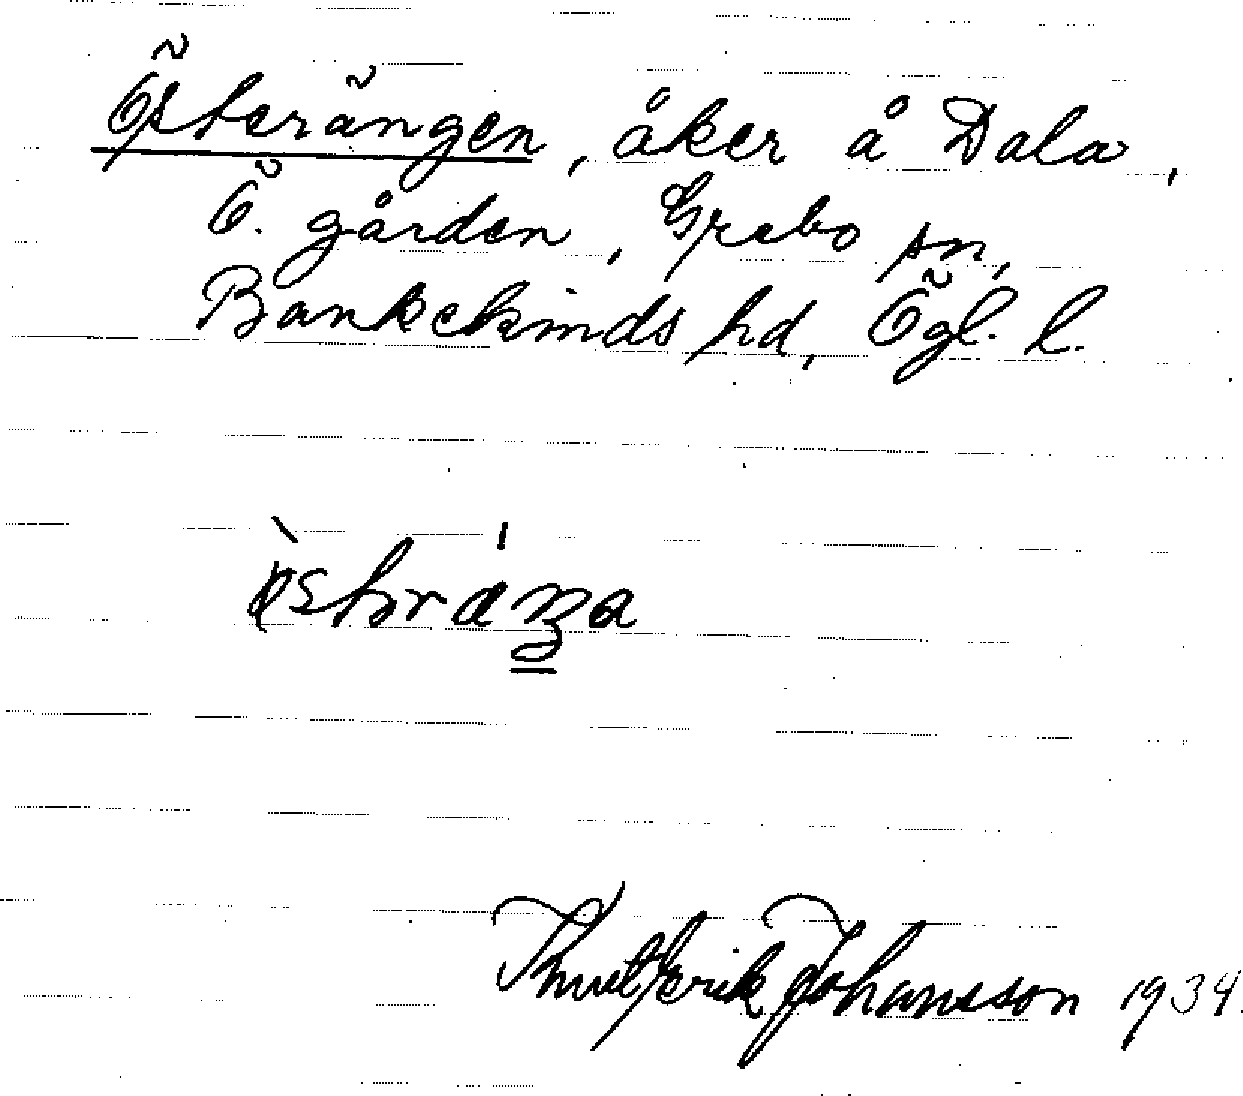 Österängen, åker å Dala,
Ö. gården, Grebo sn,
Bankekinds hd, Ögl. l.
Erik Johansson 1934.